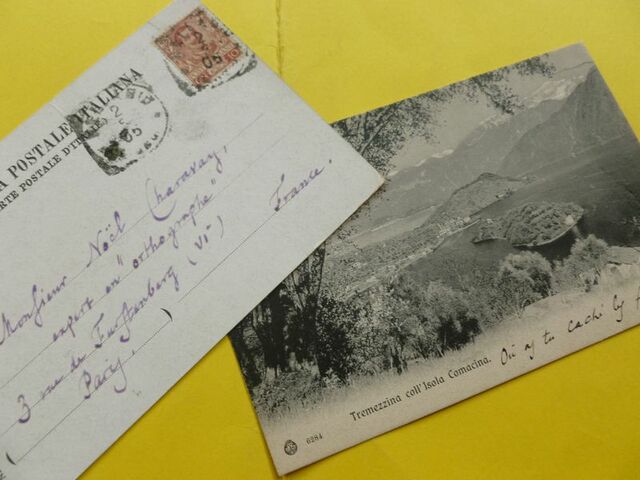 A POSTALE ITALIANA
RTE POSTALE D'IT
05
05
Monsieur Noël Charavay,
expert en "orthographe"
3 rue de Furstenberg (VIe)
Paris,
France.
Tremezzina coll'Isola Comacina.
6284
Où as tu caché